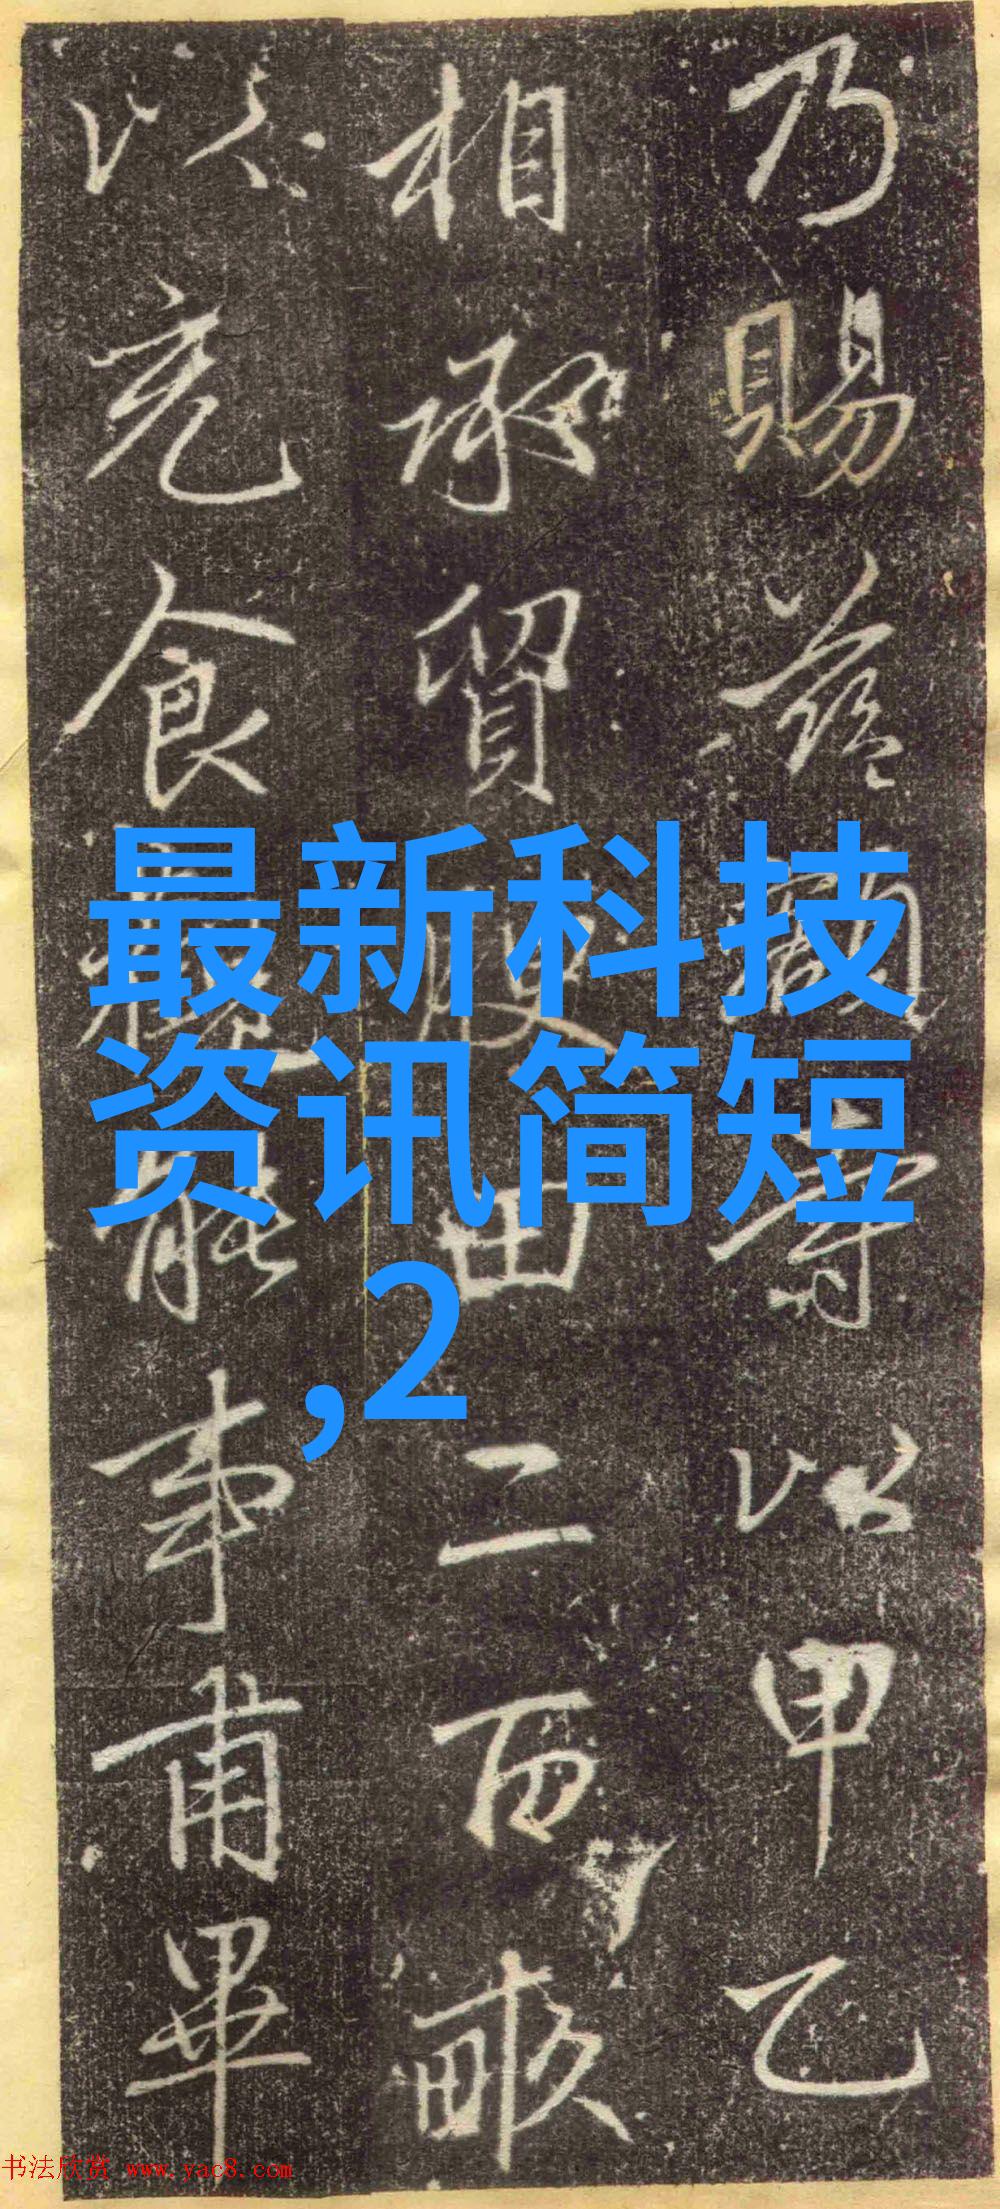 乃賜莊
尊以甲乙
相承貿
田二百畝
以充食
能事甫畢
最新科技
资讯简短
,2
书法欣赏 www.yac8.com